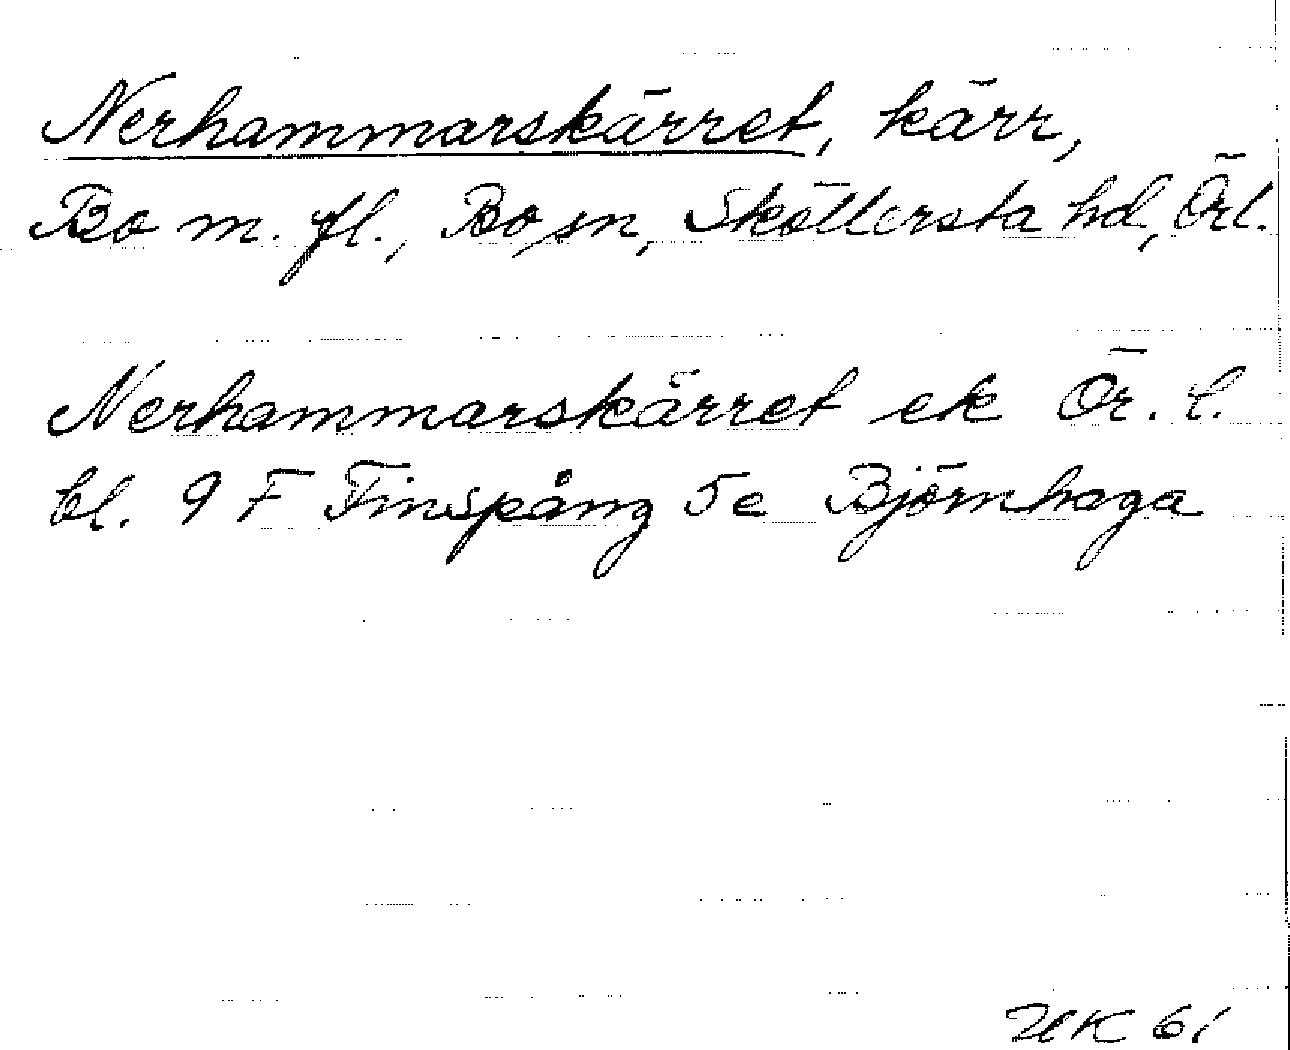 Nerhammarskärret, kärr,
Bo m. fl., Bo sn, Sköllersta hd, Örl.
Nerhammarskärret ek Ör. l.
bl. 9 F Finspång 5e Björnhaga
UK 61